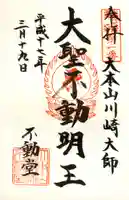 奉拝
大本山川崎大師
大聖不動明王
平成十七年
三月十九日
不動堂